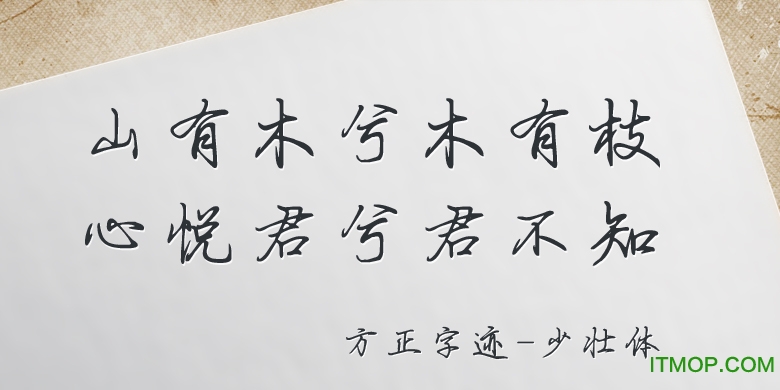 山有木兮木有枝
心悦君兮君不知
方正字迹-少壮体
ITMOP.COM